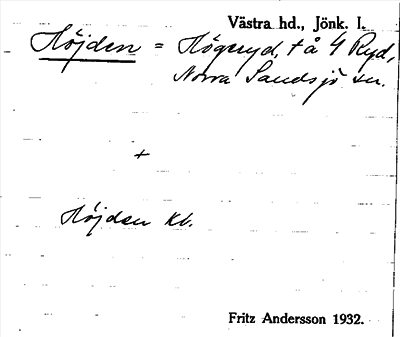 Västra hd., Jönk. l.
Höjden = Högeryd, † å 4 Ryd,
Norra Sandsjö sn.
+
Höjden kb.
Fritz Andersson 1932.